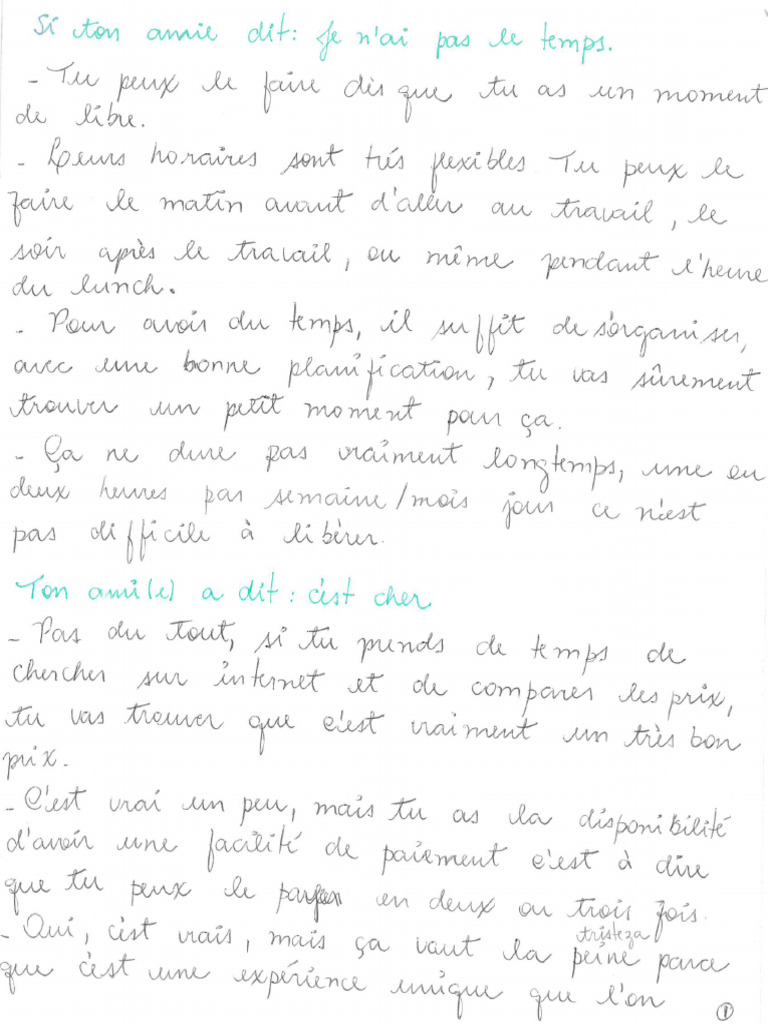 Si ton amie dit: Je n'ai pas le temps.
- Tu peux le faire dès que tu as un moment
de libre.
- Leurs horaires sont trés flexibles Tu peux le
faire le matin avant d'aller au travail, le
soir après le travail, ou même pendant l'heure
du lunch.
- Pour avoir du temps, il suffit de s'organiser,
avec une bonne planification, tu vas sûrement
trouver un petit moment pour ça.
- Ça ne dure pas vraiment longtemps, une ou
deux heures par semaine/mois jour ce n'est
pas difficile à libérer.
Ton ami(e) a dit: c'est cher
- Pas du tout, si tu prends de temps de
chercher sur internet et de comparer les prix,
tu vas trouver que c'est vraiment un très bon
prix.
- C'est vrai un peu, mais tu as la disponibilité
d'avoir une facilité de paiement c'est à dire
que tu peux le payer en deux ou trois fois.
- Oui, c'est vrais, mais ça vaut la peine parce
tristeza
que c'est une expérience unique que l'on
1